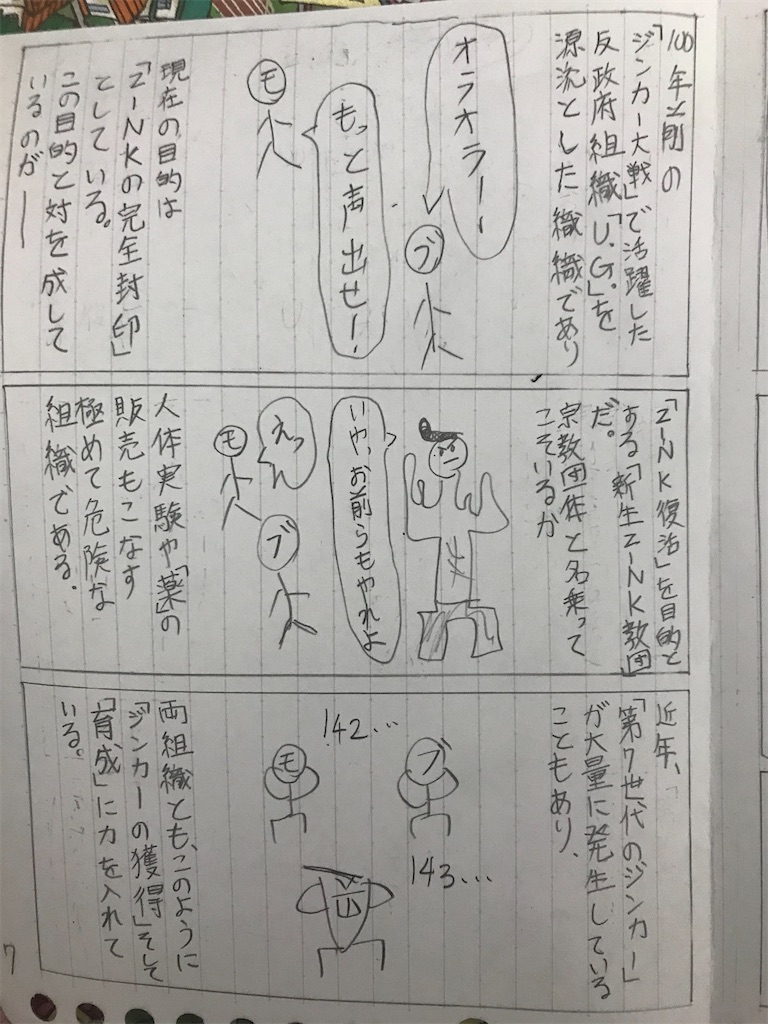 100年前の
「ジンカー大戦」で活躍した
反政府組織「U.G.」を
源流とした組織であり
オラオラー
ブ
もっと声出せ！
モ
現在の目的は
「ZINKの完全封印」
としている。
この目的と対を成して
いるのが――
「ZINK復活」を目的と
する「新生ZINK教団」
だ。
宗教団体と名乗って
こそいるが
いや、お前らもやれよ
えっ
ブ
モ
人体実験や「薬」の
販売もこなす
極めて危険な
組織である。
近年、
「第7世代のジンカー」
が大量に発生している
こともあり、
ブ
142...
モ
143...
両組織とも、このように
「ジンカーの獲得」そして
「育成」に力を入れて
いる。
7